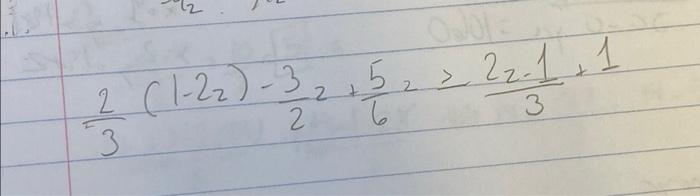 2/3 (1-2z) - 3/2 z + 5/6 z ≥ (2z-1)/3 + 1